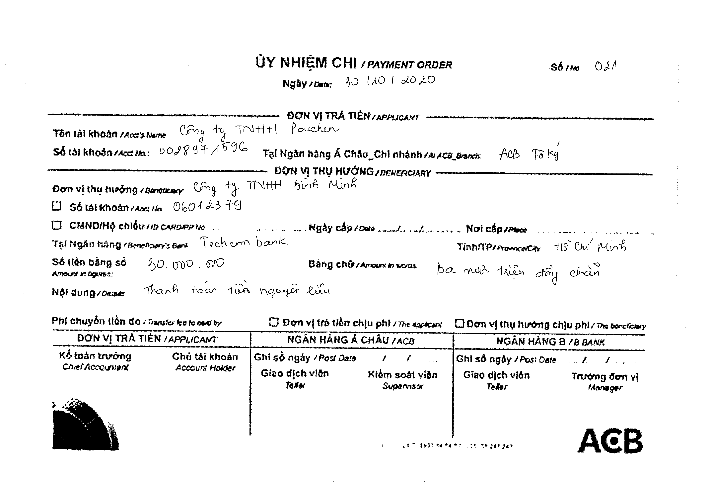 ỦY NHIỆM CHI / PAYMENT ORDER Số / No 021
Ngày / Date: 30/20/2020
ĐƠN VỊ TRẢ TIỀN / APPLICANT
Tên tài khoản / Acct's Name Công ty TNHH Pouchen
Số tài khoản / Acct No.: 002897/596 Tại Ngân hàng Á Châu_Chi nhánh / At ACB_Branch: ACB Tô Ký
ĐƠN VỊ THỤ HƯỞNG / BENEFICIARY
Đơn vị thụ hưởng / Beneficiary Công ty TNHH Bình Minh
Số tài khoản / Acc No 06012379
CMND/Hộ chiếu / ID CARD/PP No Ngày cấp / Date ..../..../.... Nơi cấp / Place
Tại Ngân hàng / Beneficiary's Bank Techcombank Tỉnh/TP / Province/City Chí Minh
Số tiền bằng số 30.000.000 Bằng chữ / Amount in words ba mươi triệu đồng chẵn
Amount in figures:
Nội dung / Details Thanh toán tiền nguyên liệu
Phí chuyển tiền do / Transfer fee to paid by Đơn vị trả tiền chịu phí / The applicant Đơn vị thụ hưởng chịu phí / The beneficiary
ĐƠN VỊ TRẢ TIỀN / APPLICANT NGÂN HÀNG Á CHÂU / ACB NGÂN HÀNG B / B BANK
Kế toán trưởng Chủ tài khoản Ghi sổ ngày / Post Date / / Ghi sổ ngày / Post Date / /
Chief Accountant Account Holder Giao dịch viên Kiểm soát viên Giao dịch viên Trưởng đơn vị
Teller Supervisor Teller Manager
ACB